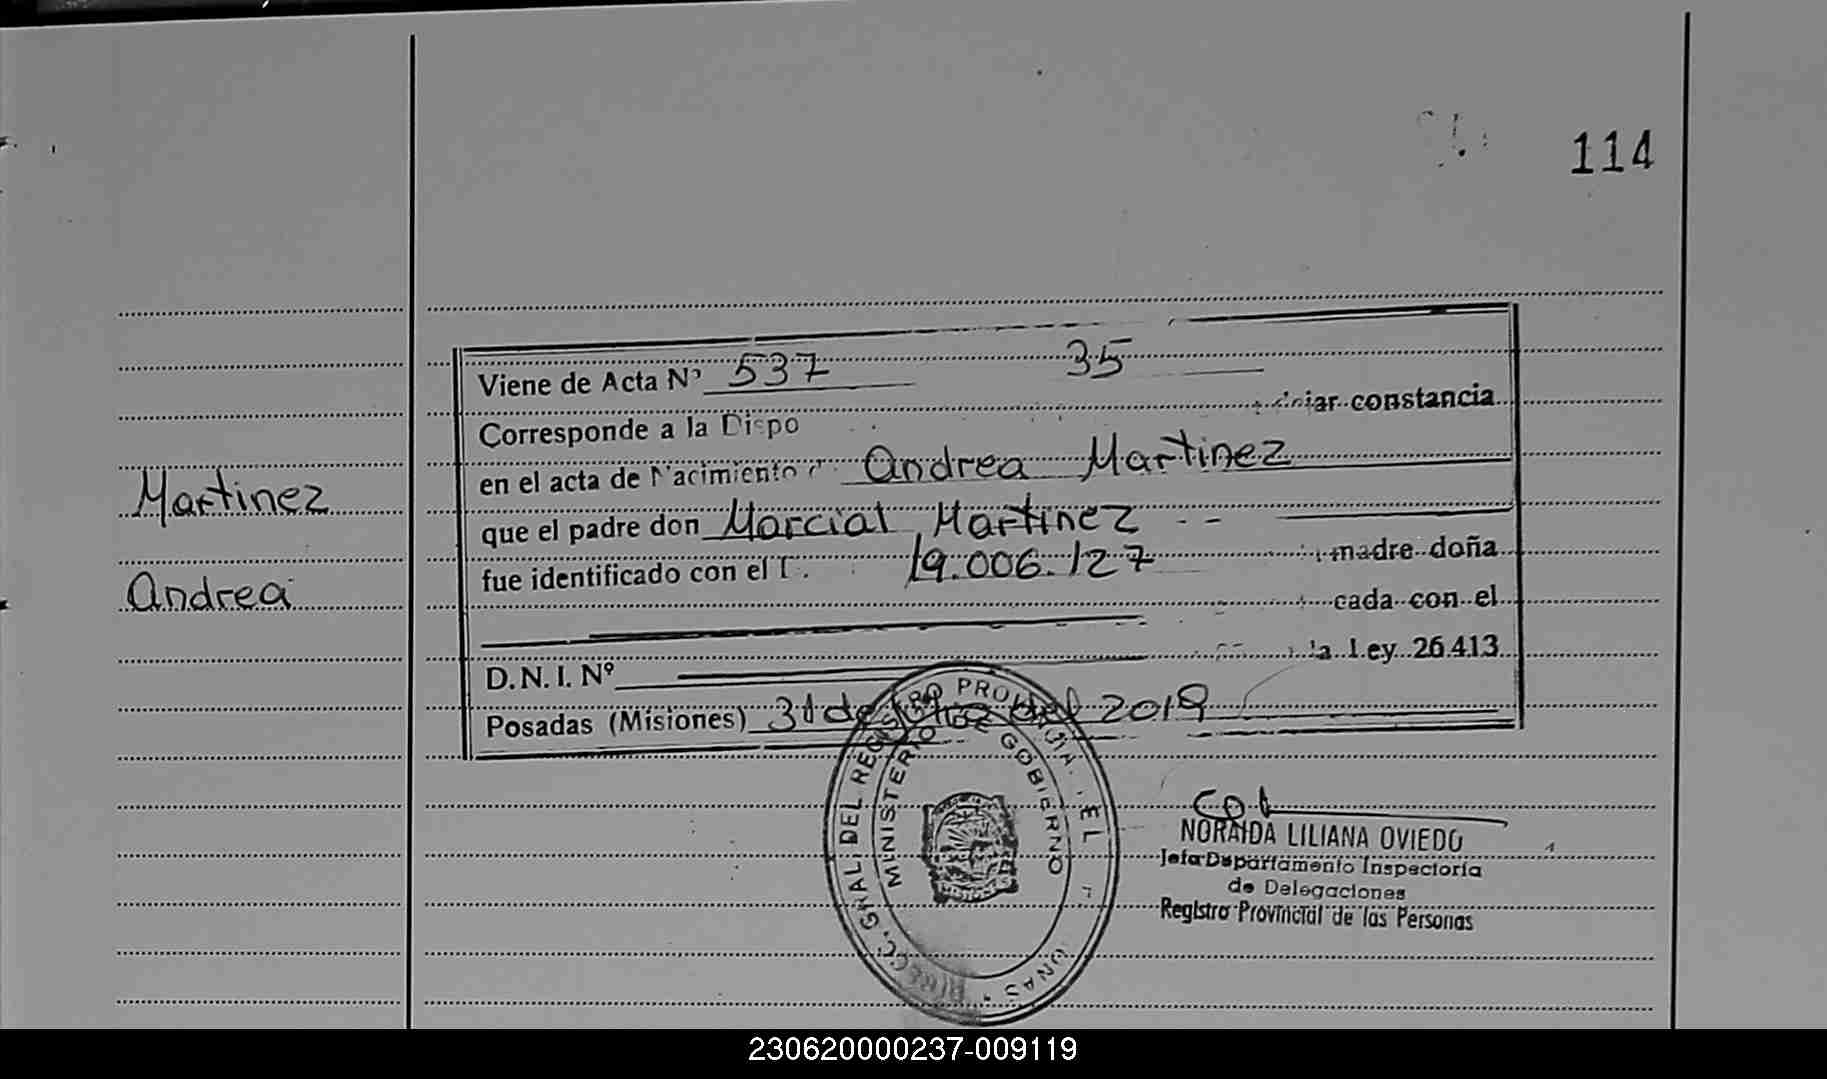 114
Viene de Acta Nº 537 35
Corresponde a la Dispo
ciar constancia
en el acta de Nacimiento Andrea Martinez
Martinez
que el padre don Marcial Martinez
fue identificado con el 19.006.127 madre doña
Andrea
cada con el
la Ley 26.413
D.N.I. Nº
Posadas (Misiones) 31 de del 2019
DIRECC. GRAL. DEL REGISTRO PROVINCIAL
MINISTERIO DE GOBIERNO
NORAIDA LILIANA OVIEDO
Jefa Departamento Inspectoría
de Delegaciones
Registro Provincial de las Personas
230620000237-009119